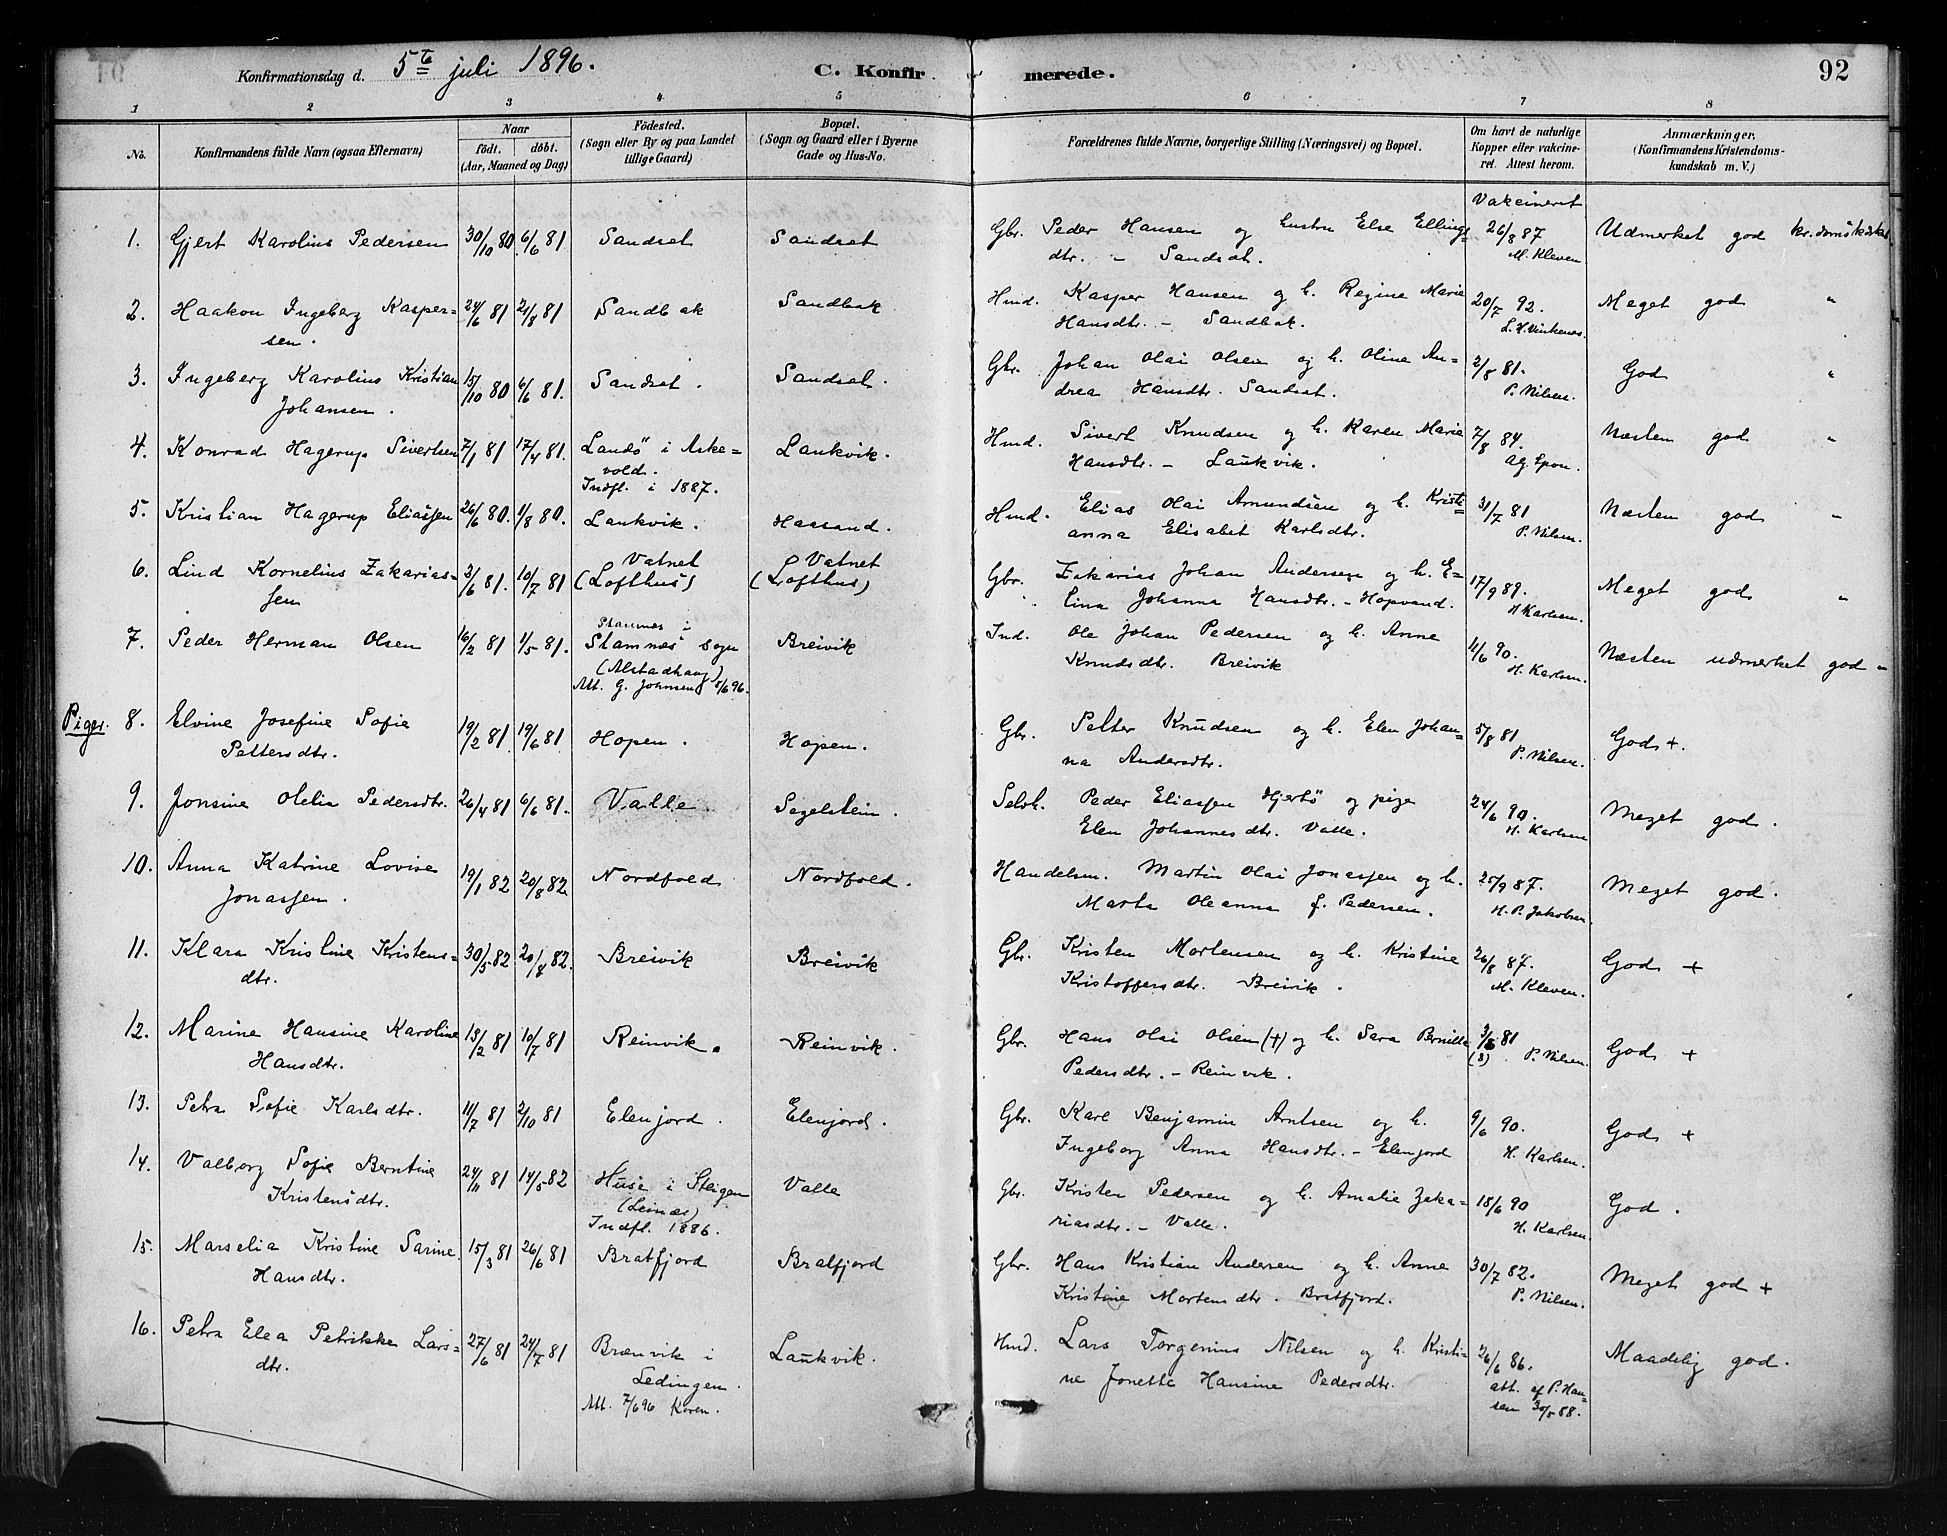 Konfirmationsdag d. 5te juli 1896. C. Konfirmerede. 92
1 2 3 4 5 6 7 8
No. Konfirmandens fulde Navn (ogsaa Efternavn) Naar födt. döbt. (Aar, Maaned og Dag) Födested. (Sogn eller By og paa Landet tillige Gaard) Bopæl. (Sogn og Gaard eller i Byerne Gade og Hus-No. Forældrenes fulde Navne, borgerlige Stilling (Næringsvei) og Bopæl. Om havt de naturlige Kopper eller vakcineret. Attest herom. Anmærkninger, (Konfirmandens Kristendomskundskab m. V.)
Vakcineret
1. Gjert Karolius Pedersen 30/10 80. 6/6 81. Sandset Sandset Gbr. Peder Hansen og hustru Else Ellings= 26/8 87 Udmerket god
dtr. - Sandset. M. Kleven
2. Haakon Ingeberg Kasper= 24/6 81 21/8 81 Sandbak Sandbak Hmd. Kasper Hansen og h. Regine Marie 20/7 92. Meget god "
sen. Hansdtr. - Sandbak.
3. Ingeberg Karolius Kristian 15/10 80 6/6 81. Sandset. Sandset. Gbr. Johan Olai Olsen og h. Oline An= 2/8 81. God "
Johansen. drea Hansdtr. Sandset. P. Nilsen.
4. Konrad Hagerup Sivertsen 7/1 81 17/4 81. Landö i Aske= Laukvik. Hmd. Sivert Knudsen og h. Karen Marie 7/8 84. Næsten god "
vold. Hansdtr. - Laukvik.
Indfl. i 1887.
5. Kristian Hagerup Eliassen 26/6 80. 1/8 80. Laukvik. Hmd. Elias Olai Amundsen og h. Kristi= 31/7 81 Næsten god "
anna Elisabet Karlsdtr. P. Nilsen.
6. Lind Kornelius Zakarias= 3/6 81. 10/7 81 Vatnet Vatnet Gbr. Zakarias Johan Andersen og h. E= 17/9 89. Meget god "
sen (Lofthus) (Lofthus) lina Johanna Hansdtr. - Hopvand. H. Karlsen.
7. Peder Herman Olsen 16/2 81 1/5 81. Stamnes i Breivik Ind. Ole Johan Pedersen og h. Anne 11/6 90. Næsten udmerket god "
Stamnes sogn Knudsdtr. Breivik H. Karlsen.
(Alstadhaug)
Att. G. Johnsen 5/6 96.
Piger. 8. Elvine Josefine Sofie 19/2 81. 19/6 81 Hopen. Hopen. Gbr. Petter Knudsen og h. Elen Johan= 5/8 81 God +.
Pettersdtr. na Andersdtr. P. Nilsen.
9. Jonsine Olelia Pedersdtr. 26/4 81 6/6 81. Valle Segelstein. Selvh. Peder Eliassen Hjertö og pige 24/6 90. Meget god.
Elen Johannesdtr. Valle. H. Karlsen
10. Anna Katrine Lovise 19/1 82 20/8 82. Nordfold Nordfold. Handelsm. Martin Olai Jonassen og h. 25/9 87. Meget god.
Jonassen. Marta Oleanna f. Pedersen. H. P. Jakobsen.
11. Klara Kristine Kristens= 30/5 82. 20/8 82. Breivik Breivik Gbr. Kristen Mortensen og h. Kristine 26/8 87. God +
dtr. Kristoffersdtr. Breivik. M. Kleven.
12. Marine Hansine Karoline 13/2 81 10/7 81 Reinvik. Reinvik. Gbr. Hans Olai Olsen (+) og h. Sara Bernille 81 God +
Hansdtr. Pedersdtr. - Reinvik. P. Nilsen.
13. Petra Sofie Karlsdtr. 11/7 81 2/10 81 Elenjord. Elenjord. Gbr. Karl Benjamin Arntsen og h. 9/6 90. God +
Ingeborg Anna Hansdtr. - Elenjord H. Karlsen.
14. Valborg Sofie Berntine 24/11 81 14/5 82 Huse i Steigen Valle Gbr. Kristen Pedersen og h. Amalie Zaka= 18/6 90 God.
Kristensdtr. (Leines) riasdtr. - Valle. H. Karlsen.
Indfl. 1886.
15. Marselia Kristine Sarine 15/3 81 26/6 81 Bratfjord Bratfjord Gbr. Hans Kristian Andersen og h. Anne 30/7 82. Meget god +
Hansdtr. Kristine Mortensdtr. Bratfjord. P. Nilsen.
16. Petra Elea Petrikke Lars= 27/6 81 24/7 81 Brænvik i Laukvik. Hmd. Lars Torgenius Nilsen og h. Kristi= 26/6 86. Maadelig god.
dtr. Lødingen. ne Jonette Hansine Pedersdtr. att. af P. Han=
Att. 7/6 96 Koren. sen 30/5 88.